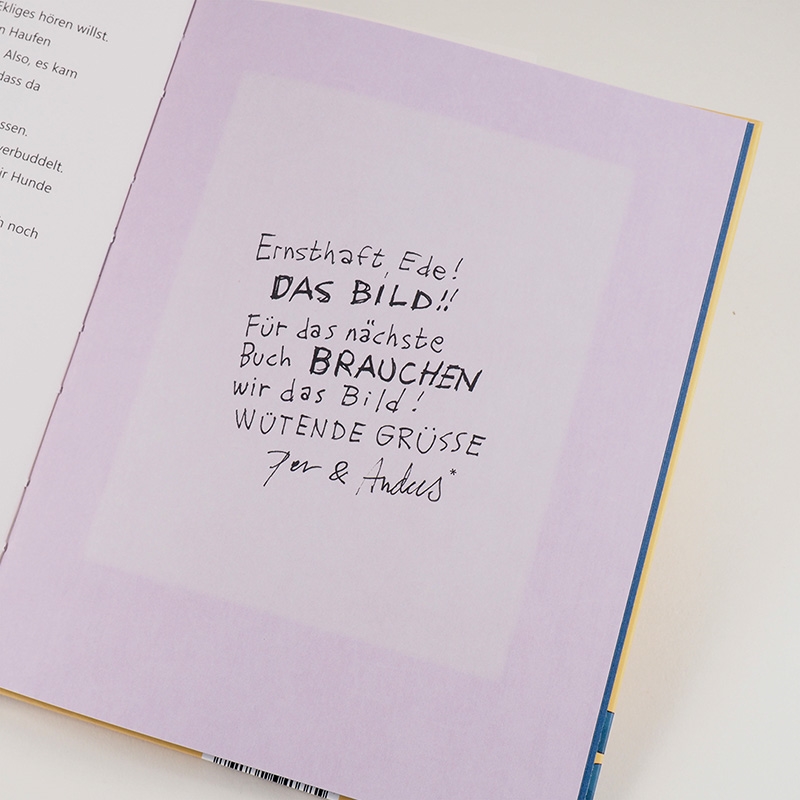 Ekliges hören willst.
n Haufen
Also, es kam
dass da
ssen.
verbuddelt.
ir Hunde
h noch
Ernsthaft, Ede!
DAS BILD!!
Für das nächste
Buch BRAUCHEN
wir das Bild!
WÜTENDE GRÜSSE
Per & Anders*